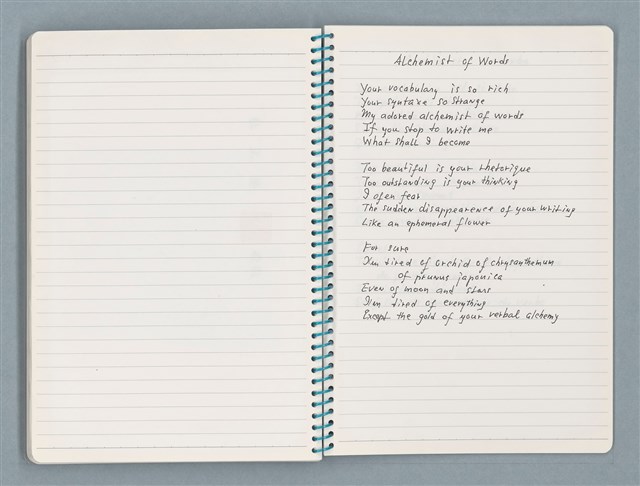 Alchemist of Words
Your vocabulary is so rich
Your syntaxe so strange
My adored alchemist of words
If you stop to write me
What shall I become
Too beautiful is your rhetorique
Too outstanding is your thinking
I ofen fear
The sudden disappearence of your writing
Like an ephemeral flower
For sure
I'm tired of orchid of chrysanthemum
of prunus japonica
Even of moon and stars
I'm tired of everything
Except the gold of your verbal alchemy